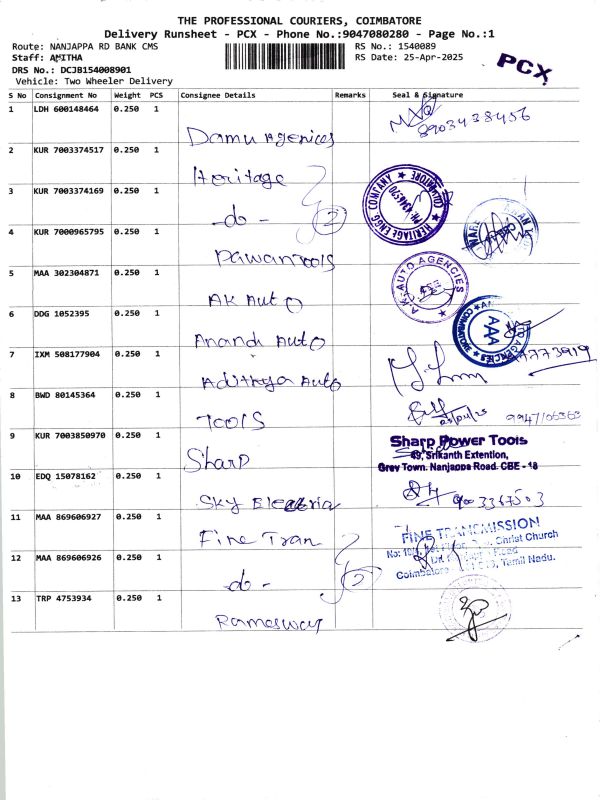 THE PROFESSIONAL COURIERS, COIMBATORE
Delivery Runsheet - PCX - Phone No.:9047080280 - Page No.:1
Route: NANJAPPA RD BANK CMS
RS No.: 1540089
Staff: AMITHA
RS Date: 25-Apr-2025
PCX
DRS No.: DCJB154008901
Vehicle: Two Wheeler Delivery
S No Consignment No Weight PCS Consignee Details Remarks Seal & Signature
1 LDH 600148464 0.250 1
Damu Agenices
8903438456
2 KUR 7003374517 0.250 1
Heritage
3 KUR 7003374169 0.250 1
-do- 2
HERITAGE ENGG. COMPANY
4 KUR 7000965795 0.250 1
Pawan Tools
5 MAA 302304871 0.250 1
AK Auto
A.K. AUTO AGENCIES
6 DDG 1052395 0.250 1
Anandi Auto
AAA
COIMBATORE
AGENCIES
7 IXM 508177904 0.250 1
Adithya Auto
8 BWD 80145364 0.250 1
Tools
9947106363
9 KUR 7003850970 0.250 1
Sharp
Sharp Power Tools
49, Srikanth Extention,
Grey Town. Nanjappa Road. CBE - 18
10 EDQ 15078162 0.250 1
Sky Electria
9003367503
11 MAA 869606927 0.250 1
Fine Tran
FINE TRANCMISSION
Christ Church
Road
Coimbatore Tamil Nadu.
12 MAA 869606926 0.250 1
-do- 2
13 TRP 4753934 0.250 1
Rameswar